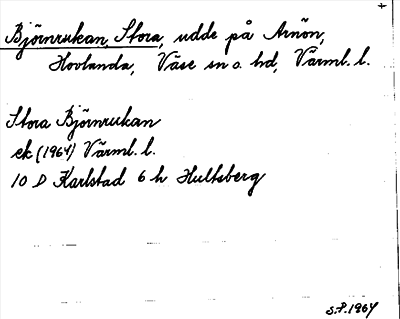 +
Björnrukan, Stora, udde på Arnön,
Hovlanda, Väse sn o. hd, Värml. l.
Stora Björnrukan
ek (1964) Värml. l.
10 D Karlstad 6 h Hultsberg
S.P. 1964